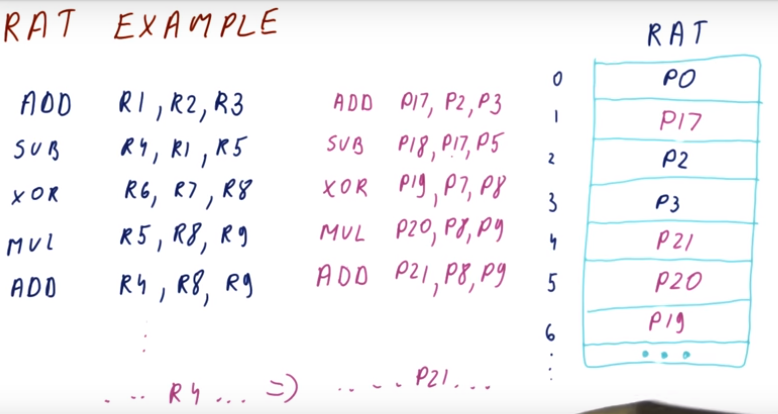 RAT EXAMPLE
ADD R1, R2, R3
SUB R4, R1, R5
XOR R6, R7, R8
MUL R5, R8, R9
ADD R4, R8, R9
... R4 ... => .... P21...
ADD P17, P2, P3
SUB P18, P17, P5
XOR P19, P7, P8
MUL P20, P8, P9
ADD P21, P8, P9
RAT
0 P0
1 P17
2 P2
3 P3
4 P21
5 P20
6 P19
...